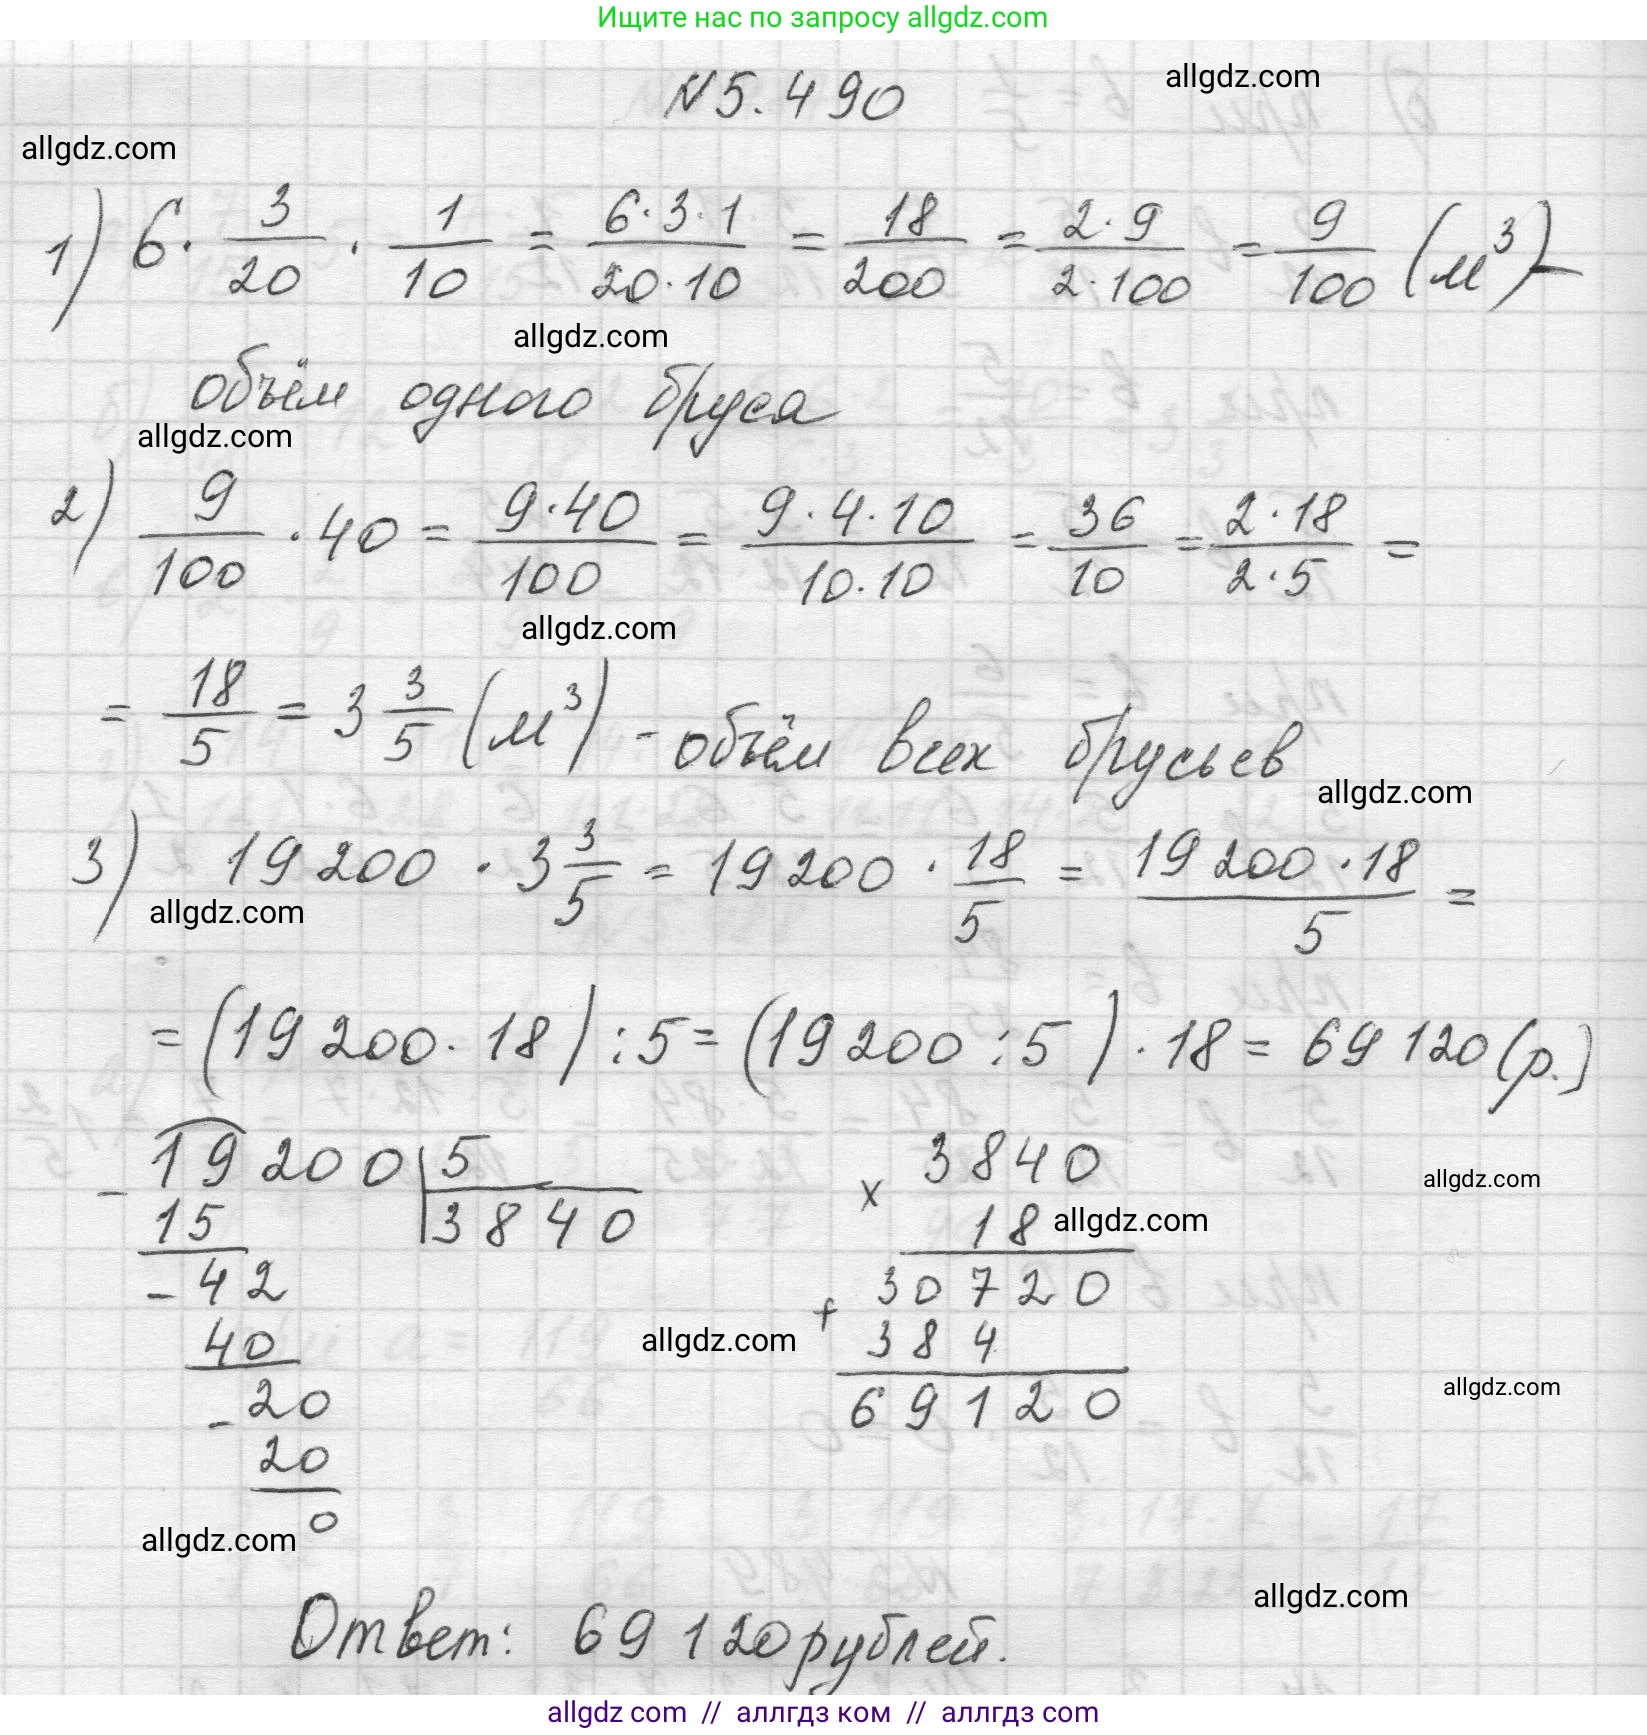 Ищите нас по запросу allgdz.com
№5.490
allgdz.com
allgdz.com
1) 6 · 3/20 · 1/10 = 6·3·1/20·10 = 18/200 = 2·9/2·100 = 9/100 (м³) –
allgdz.com
объём одного бруса
allgdz.com
2) 9/100 · 40 = 9·40/100 = 9·4·10/10·10 = 36/10 = 2·18/2·5 =
allgdz.com
= 18/5 = 3 3/5 (м³) - объём всех брусьев
allgdz.com
3) 19 200 · 3 3/5 = 19 200 · 18/5 = 19 200 · 18/5 =
allgdz.com
= (19 200 · 18) : 5 = (19 200 : 5) · 18 = 69 120 (р.)
19 200 | 5
- 15 | 3840
- 42
40
- 20
20
0
3840
× 18
30720
+ 384
69120
allgdz.com
allgdz.com
allgdz.com
allgdz.com
allgdz.com
allgdz.com
Ответ: 69 120 рублей.
allgdz.com // аллгдз ком // аллгдз com